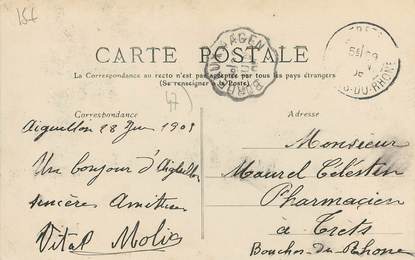 15€
CARTE POSTALE
La Correspondance au recto n'est pas acceptée par tous les pays étrangers
(Se renseigner à la Poste)
Correspondance
Aiguillon 28 1909
Un bonjour d'Aiguillon
sincères Amitiés
Vital Molié
Adresse
Monsieur
Maurel Célestin
Pharmacien
à Trets
Bouches-du-Rhône
AGEN
TRETS
-DU-RHONE